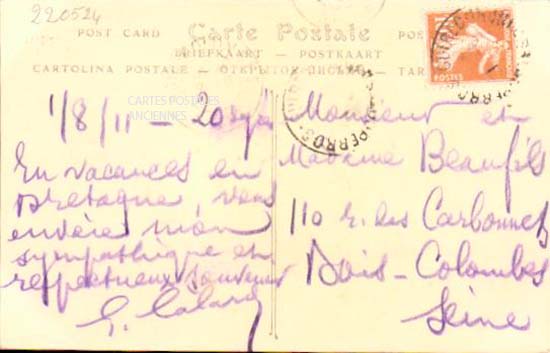 220524
POST CARD Carte Postale
BRIEFKAART — POSTKAART
CARTOLINA POSTALE — ОТКРЫТОЕ ПИСЬМО — TAR
CARTES POSTALES
ANCIENNES
POSTES
PERROS
1/8/11 —
En vacances en
Bretagne, vous
envoie mon
sympathique et
respectueux souvenir
Monsieur et
Madame Beaufils
110 r. des Carbonnets
Bois-Colombes
Seine